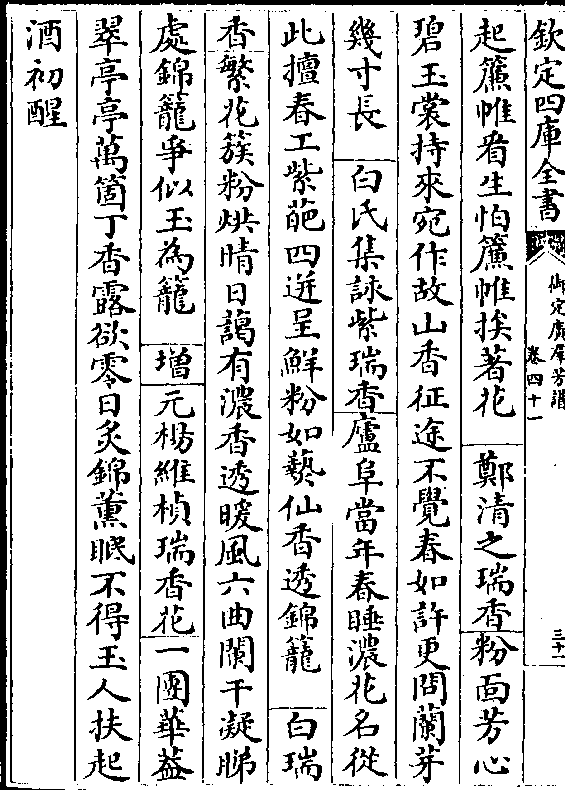 欽定四庫全書
御定廣羣芳譜
卷四十一
三十一
起簾帷看生怕簾帷挨著花　鄭清之瑞香粉面芳心
碧玉裳持來宛作故山香征途不覺春如許更問蘭芽
幾寸長　白氏集詠紫瑞香廬阜當年春睡濃花名從
此擅春工紫葩四迸呈鮮粉如爇仙香透錦籠　白瑞
香繁花簇粉烘晴日藹有濃香透暖風六曲闌干凝睇
處錦籠爭似玉為籠　增元楊維楨瑞香花一團華葢
翠亭亭萬箇丁香露欲零日炙錦薰眠不得玉人扶起
酒初醒